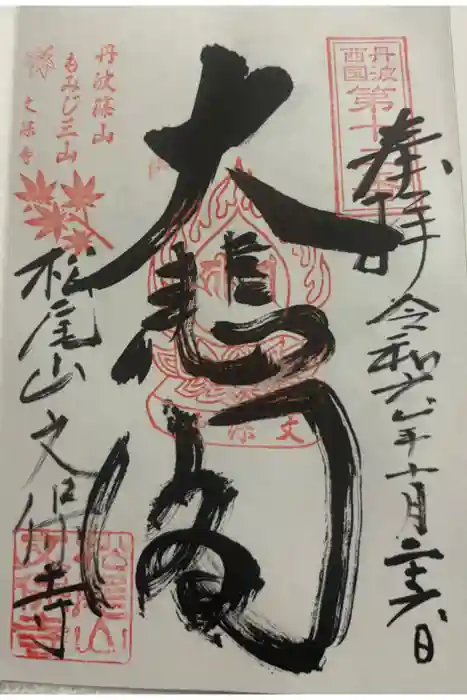 丹波
西国
第十
奉拝
令和六年十月二十六日
大悲閣
松尾山文保寺
丹波篠山
もみじ三山
文保寺
松尾山
文保寺